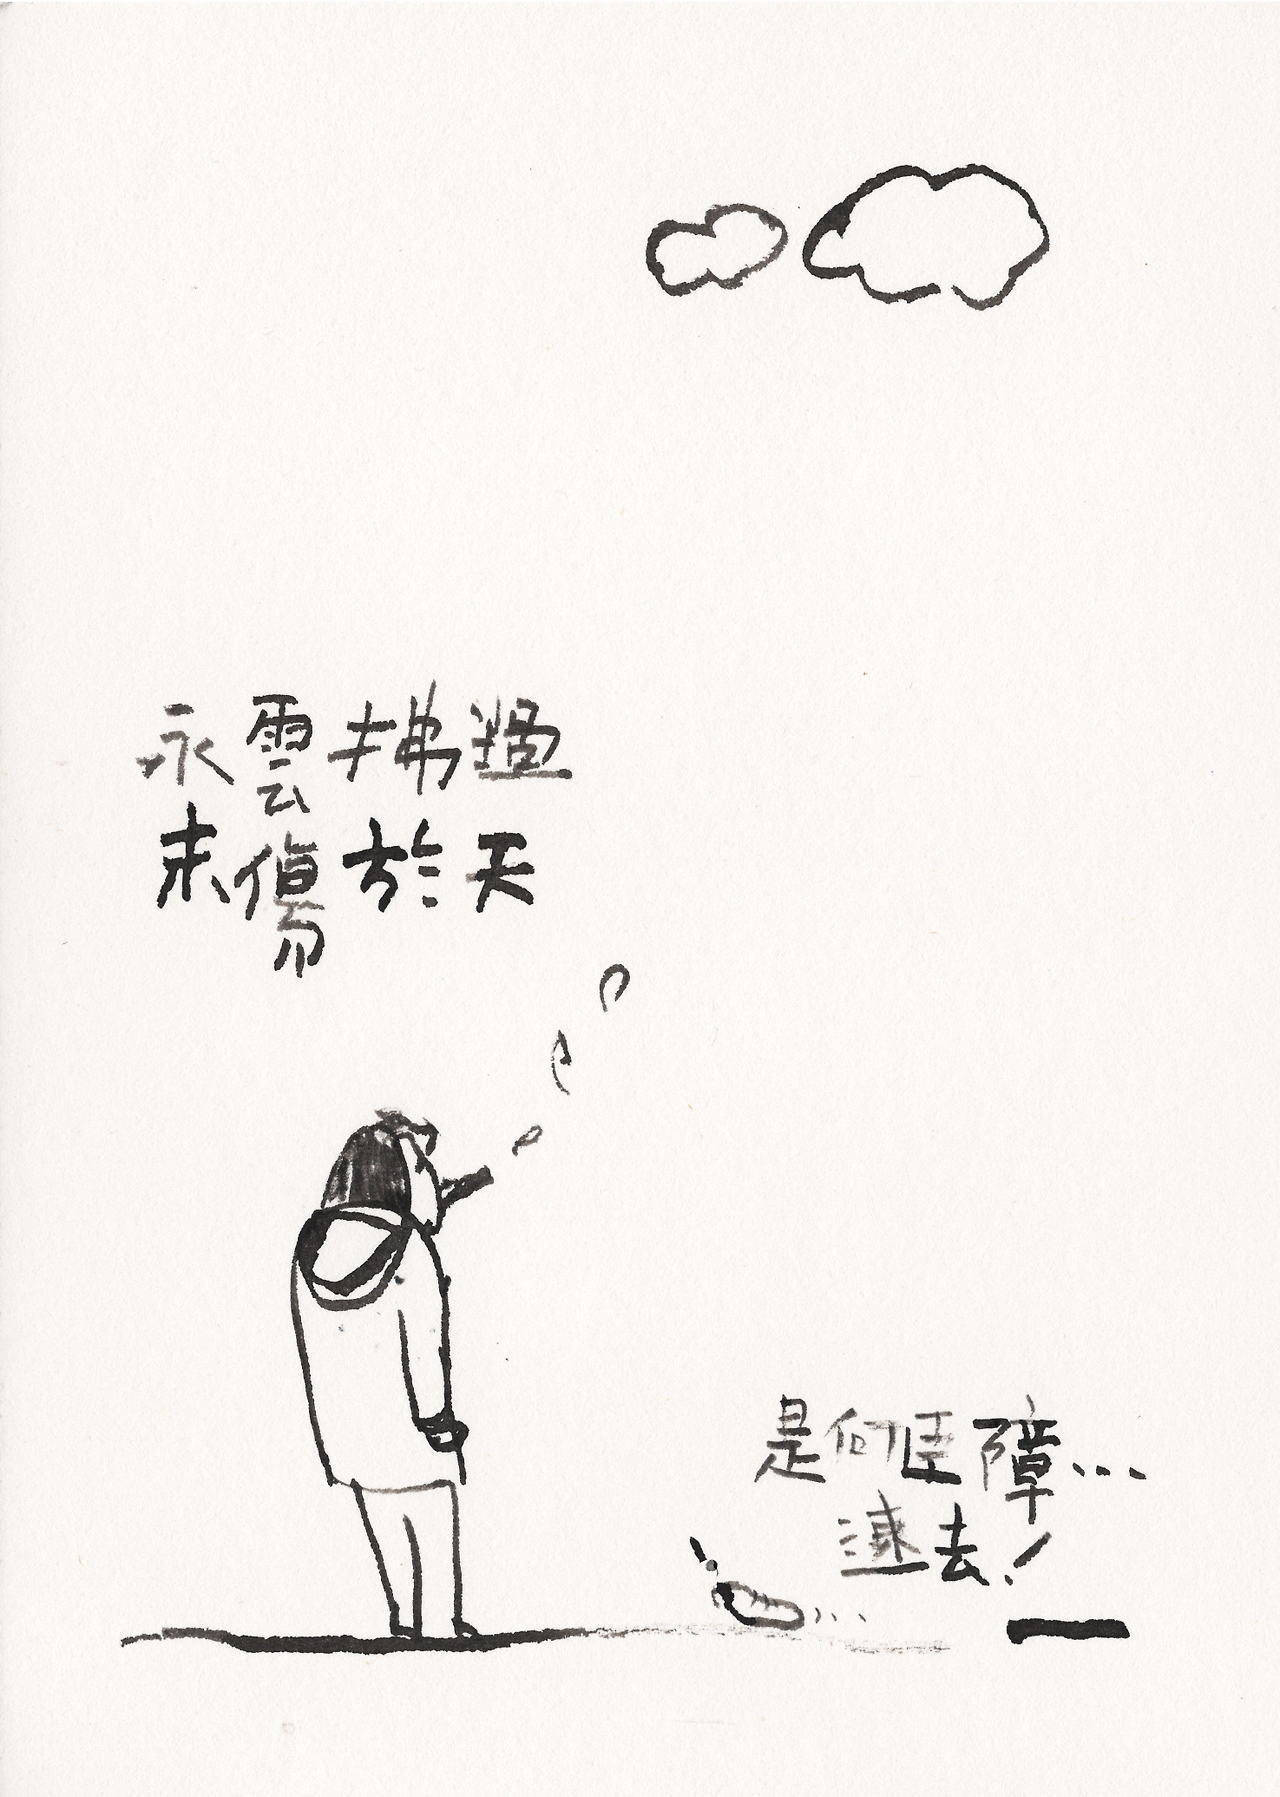 永雲拂過
未傷於天
是何巨障...
速去!